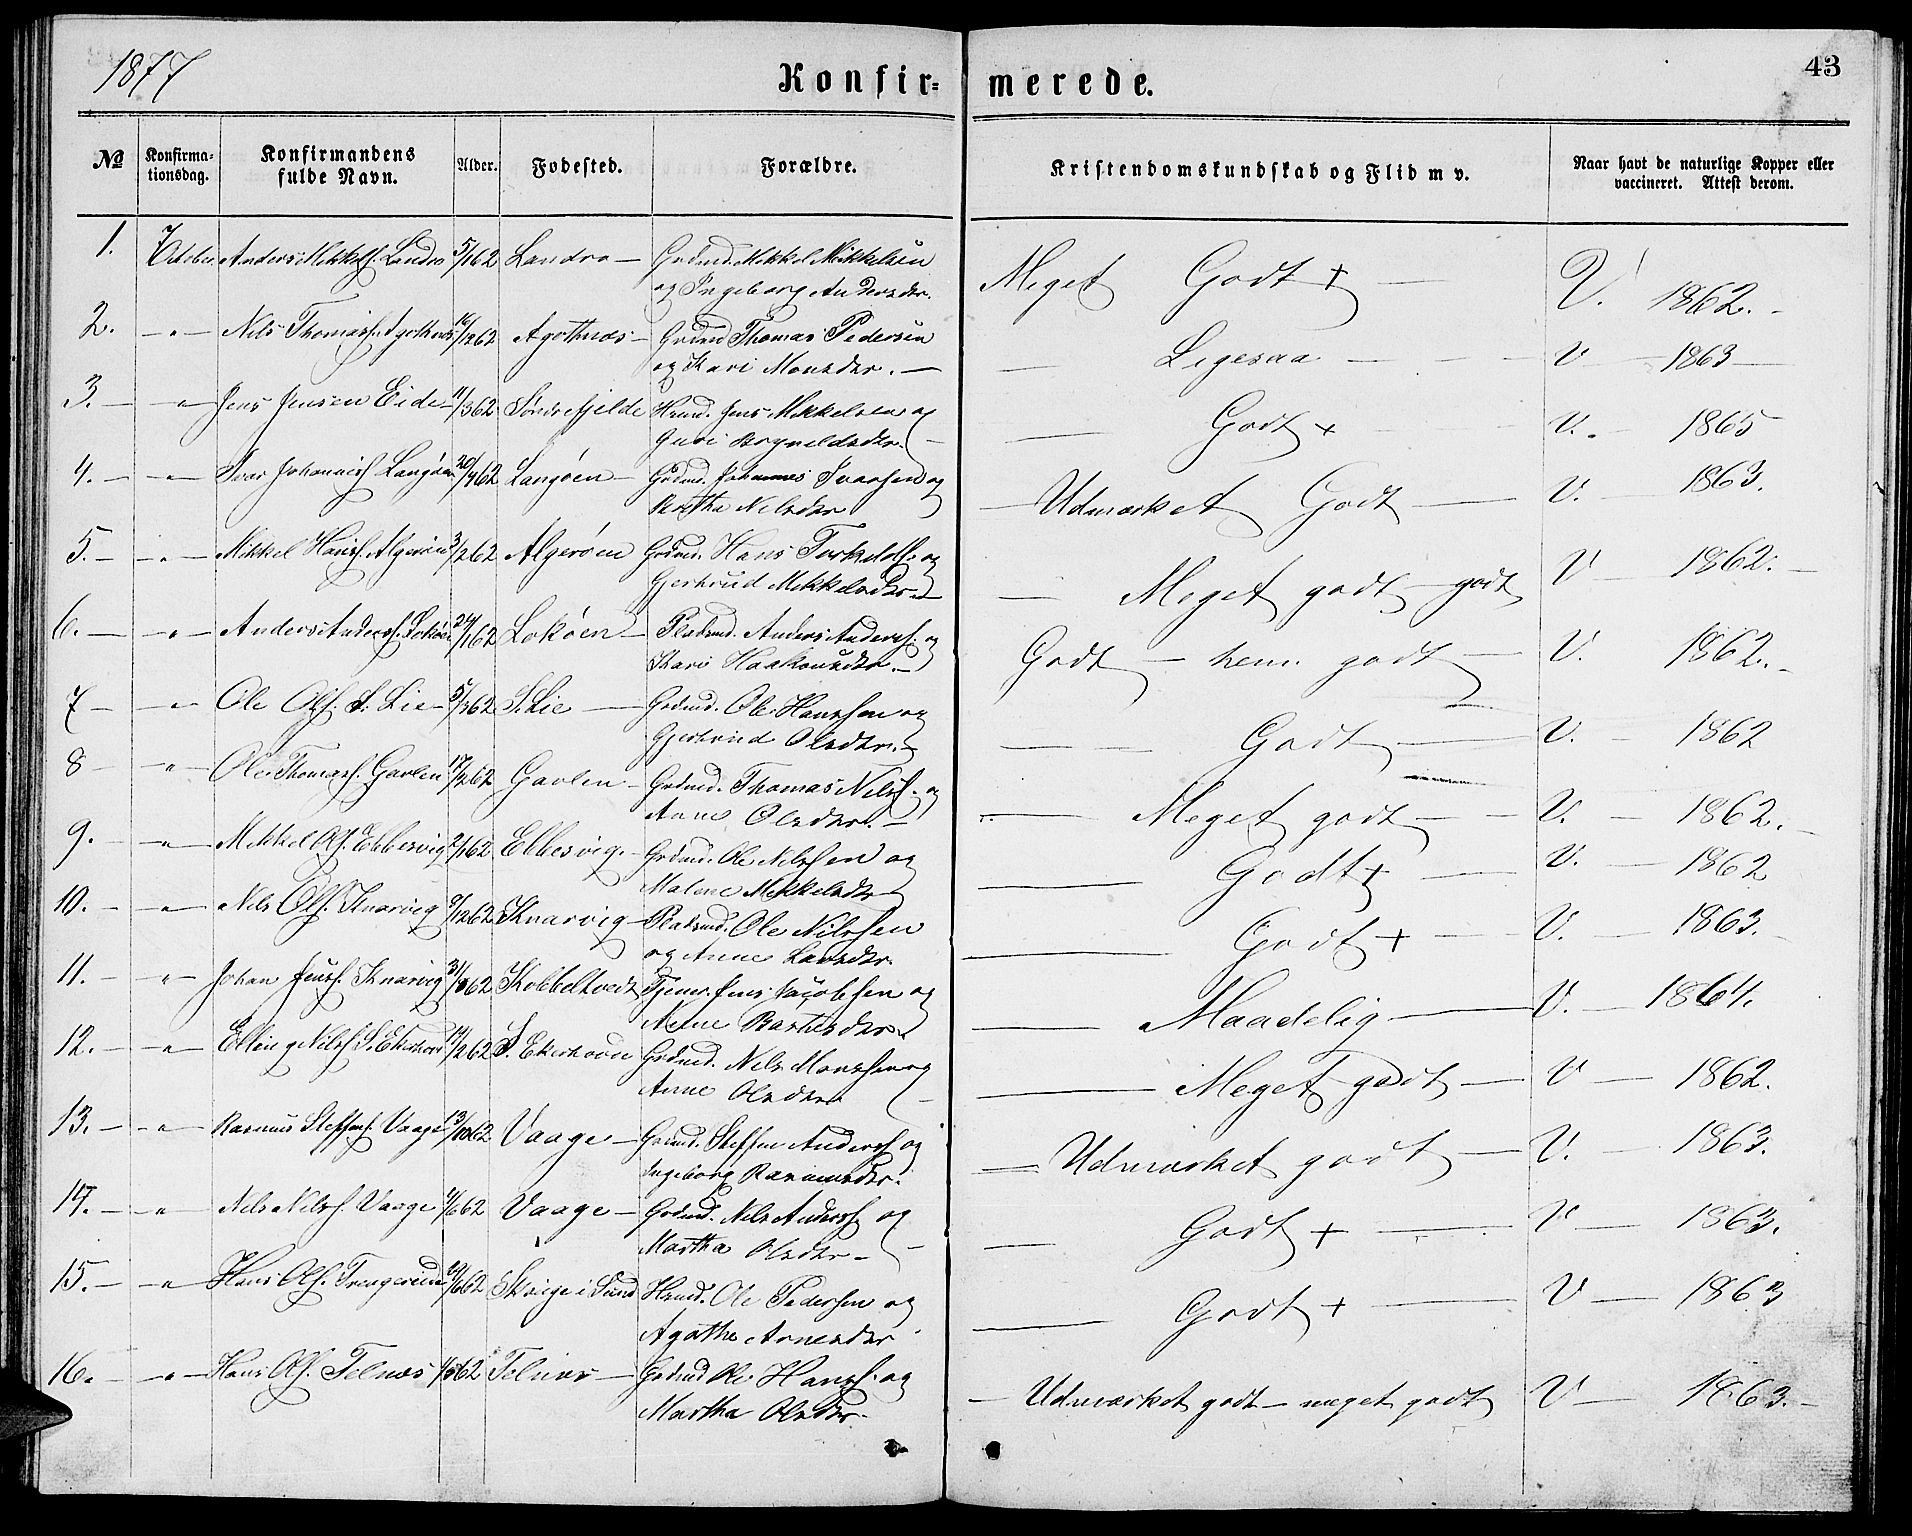 1877
Konfir-
merede.
43
No
Konfirma-
tionsdag.
Konfirmandens
fulde Navn.
Alder.
Fodested.
Forældre.
Kristendomskundskab og Flid m v.
Naar havt de naturlige Kopper eller
vaccineret. Attest derom.
1. 7 October. Anders Mikkels. Landro 5/1 62 Landro — Grdmd. Mikkel Mikkelsen
og Ingeborg Andersdtr.
Meget Godt + — V. 1862. -
2. — " — Nils Thomass. Agothnæs 16/12 62 Agothnæs — Grdmd Thomas Pedersen
og Kari Monsdtr. —
— Ligesaa — — — V — 1863 —
3. — " — Jens Jensen Eide 11/3 62 Søndrefjelde Hsmd. Jens Mikkelsen og
Guri Brynildsdtr. —
— Godt + V. - 1865
4. — " — Ivar Johanness. Langøen 20/4 62 Langøen — Grdmd. Johannes Ivarsen og
Martha Nilsdtr
— Udmærket Godt — V. — 1863.
5. — " — Mikkel Hanss. Algerøen 3/2 62 Algerøen Grdmd. Hans Torkelds. og
Gjertrud Mikkelsdtr. —
— Meget godt — godt V — 1862. —
6. — " — Anders Anderss. Lokøen 24/1 62 Lokøen — Pladsmd. Anders Anderss. og
Kari Haakonsdtr. —
Godt — hem. godt — V. 1862. -
7 — " — Ole Ols. S. Lie — 5/1 62 S. Lie — Grdmd. Ole Hanssen og
Gjertrud Olsdtr. —
— — Godt — V. — 1862
8 — " — Ole Thomass. Gavlen 17/2 62 Gavlen — Grdmd. Thomas Nilss. og
Anne Olsdtr. —
— Meget godt — — V. — 1862. —
9. — " — Mikkel Ols. Ebbesvig 2/1 62 Ebbesvig. — Grdmd. Ole Nilssen og
Malene Mikkelsdtr
— Godt + — V. — 1862
10. — " — Nils Ols. Knarvig 9/12 62 Knarvig — Pladsmd. Ole Nilssen
og Anne Larsdtr.
— Godt + — V. — 1863. -
11. — " — Johan Jenss. Knarvig 31/8 62 Kobbeltvedt Tjener. Jens Jacobsen og
Anne
— Maadelig — V. — 1864.
12. — " — Elling Nilss S. Ekerhovn 14/2 62 S. Ekerhovn Grdmd. Nils Monssen og
Anne Olsdtr —
— Meget godt — V — 1862.
13. — " — Rasmus Steffens. Vaage 13/10 62 Vaage — Grdmd. Steffen Anderss og
Ingeborg Rasmusdtr.
— Udmærket godt — V. — 1863.
14. — " — Nils Nilss. Vaage 4/6 62 Vaage — Grdmd. Nils Anderss og
Martha Olsdtr — —
— Godt + — V — 1863.
15. — " — Hans Ols. 24/6 62 Skoge i Sund Hsmd. Ole Pedersen og
Agathe Arnesdtr
— Godt + — V — 1863
16. — " — Hans Ols. Telnæs 62 Telnæs — Grdmd Ole Hanss. og
Martha Olsdtr.
— Udmærket godt — meget godt V — 1863. -